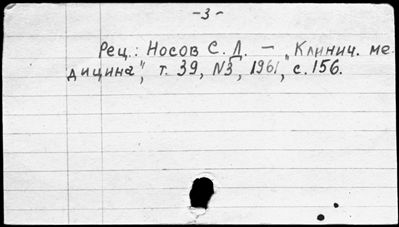 -3-
Рец.: Носов С. Д. — „Клинич. ме-
дицина", т. 39, N3, 1961, с. 156.